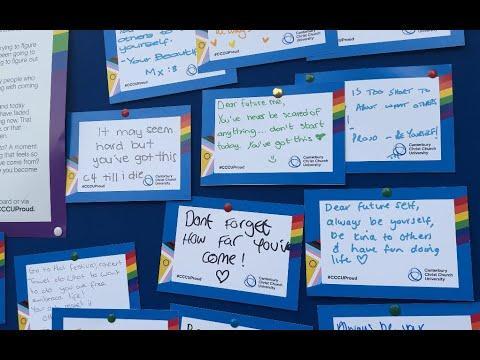 trying to figure
going to
figure out
people who
with coming
and today
have faded
now. That
or that
A moment
that feels so
come from?
you become
board or via
#CCCUProud.
others to
yourself.
- Your Beautif
Mx :3
#CCCUProud
Canterbury
Christ Church
University
#CCCUProud
It may seem
hard but
you've got this
c4 till i die
#CCCUProud
Canterbury
Christ Church
University
Dear future me,
You've never be scared of
anything... don't start
today. You've got this ♡
#CCCUProud
Canterbury
Christ Church
University
IS TOO SHORT TO
ABOUT WHAT OTHERS
PROUD - BE YOURSELF!
Canterbury
Christ Church
University
Dont Forget
How far You've
come!
♡
#CCCUProud
Canterbury
Christ Church
University
Dear future self,
always be yourself,
be kind to others
& have fun doing
life ♡
#CCCUProud
Canterbury
Christ Church
University
Go to that festival,
Travel do what to want
to do you are free
embrace life!
#CCCUProud
Always be your